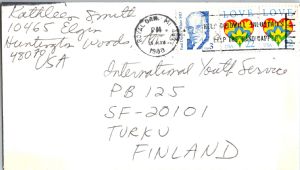 Kathleen Smith
10465 Elgin
Huntington Woods
48070
USA
ROYAL OAK, MI
PM
1988
LOVE LOVE
International Youth Service
PB 125
SF-20101
TURKU
FINLAND